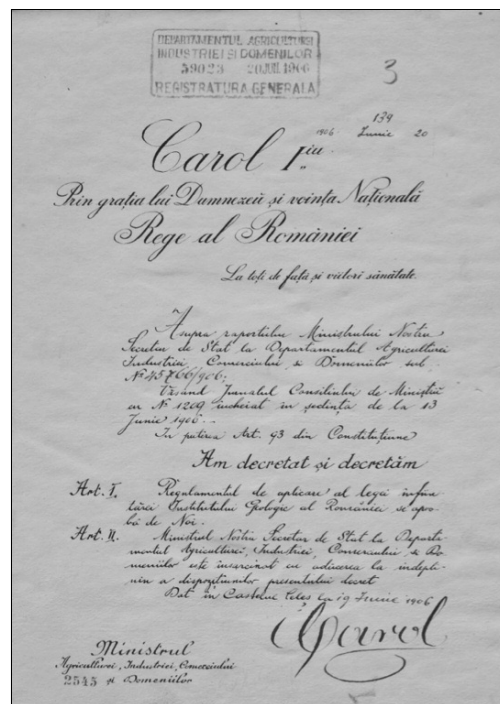 DEPARTAMENTUL AGRICULTUREI
INDUSTRIEI SI DOMENILOR
59023 20 JUN. 1906
REGISTRATURA GENERALA
3
139
1906 Iunie 20
Carol I iu
Prin grația lui Dumnezeu și voința Națională
Rege al României
La toți de față și viitori sănătate.
Asupra raportului Ministrului Nostru
Secretar de Stat la Departamentul Agriculturei
Industriei, Comerciului, & Domeniilor sub
No 45766/906;
Văzând Jurnalul Consiliului de Miniștri
cu No 1209 încheiat în ședința de la 13
Junie 1906
In puterea Art. 93 din Constituțiune
Am decretat și decretăm
Art. I. Regulamentul de aplicare al legei înfiin
țărei Institutului Geologic al României se apro
bă de Noi.
Art. II. Ministrul Nostru Secretar de Stat la Departa
mentul Agriculturei, Industriei, Comerciului, & Do
meniilor este însărcinat cu aducerea la îndepli
nire a dispozițiunilor presentului decret
Dat în Castelul Peleș la 19 Junie 1906
Carol
Ministrul
Agriculturei, Industriei, Comerciului
2545 și Domeniilor